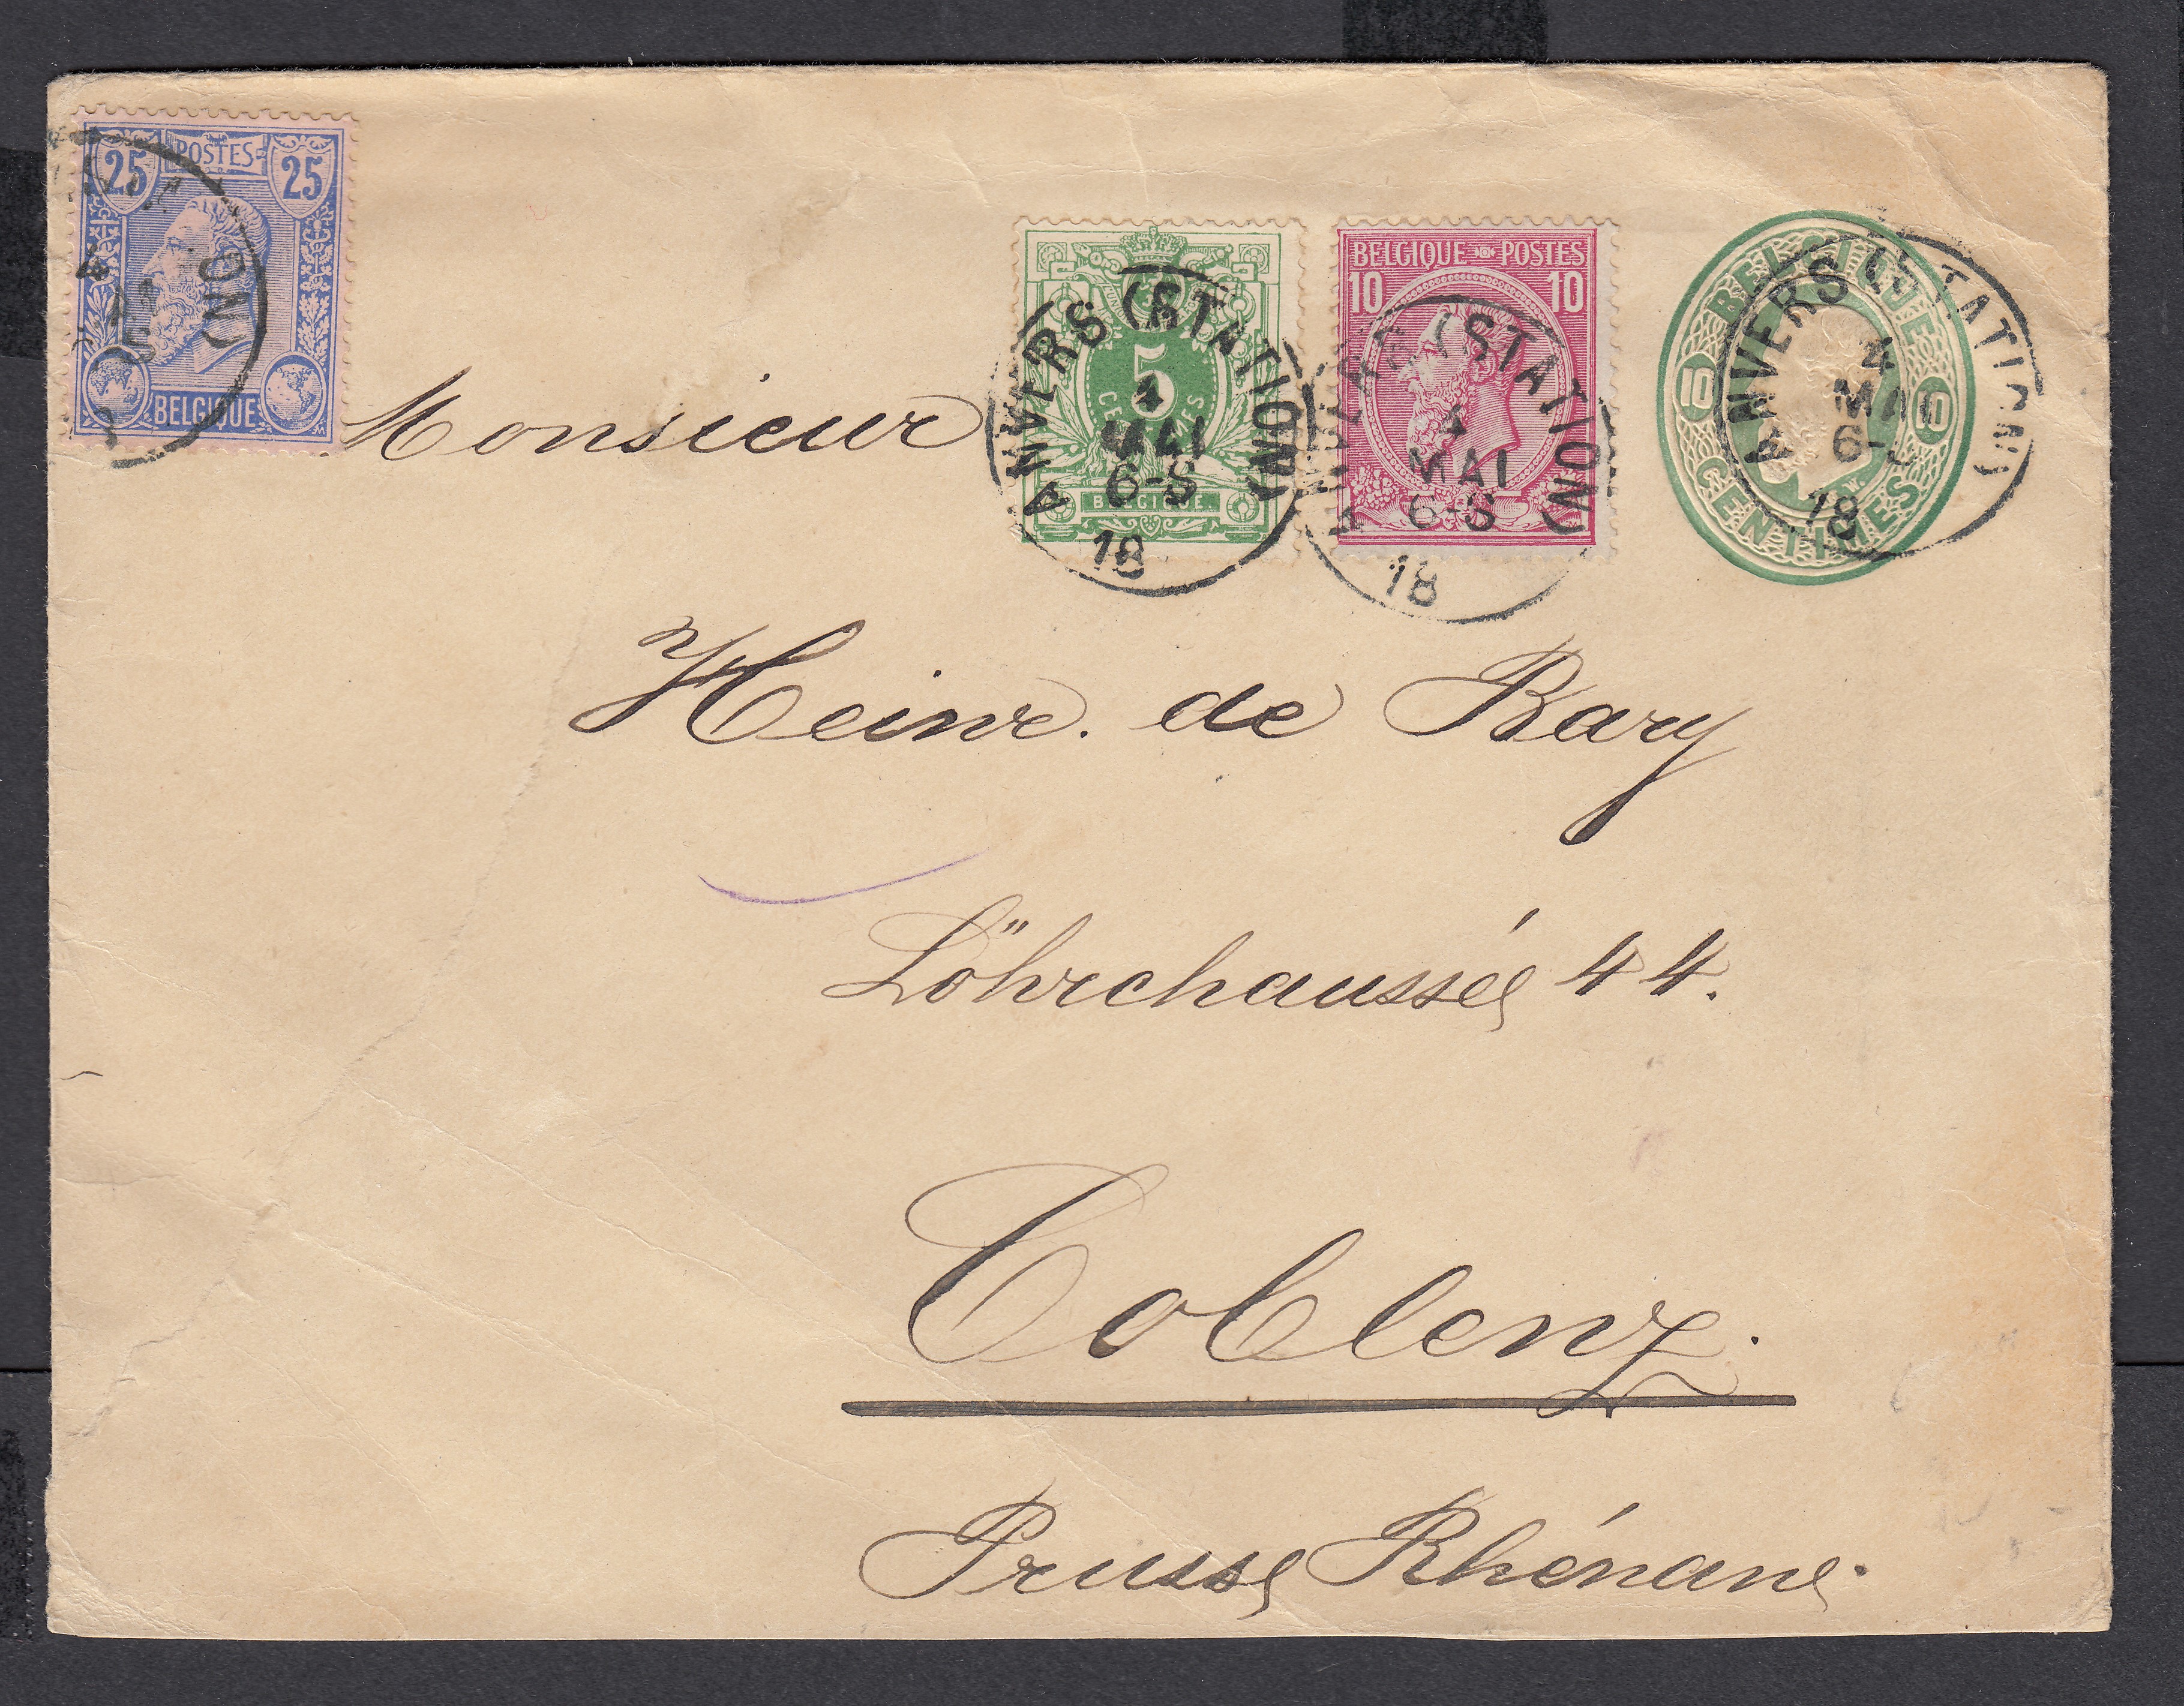 25 POSTES 25
BELGIQUE
5
CENTIMES
BELGIQUE
BELGIQUE POSTES
10 10
BELGIQUE
10 10
CENTIMES
ANVERS (STATION)
4
MAI
6-S
18
ANVERS (STATION)
4
MAI
6-S
18
ANVERS (STATION)
4
MAI
18
Monsieur
Heinr. de Bary
Löhrchaussée 44.
Coblenz.
Prusse Rhénane.